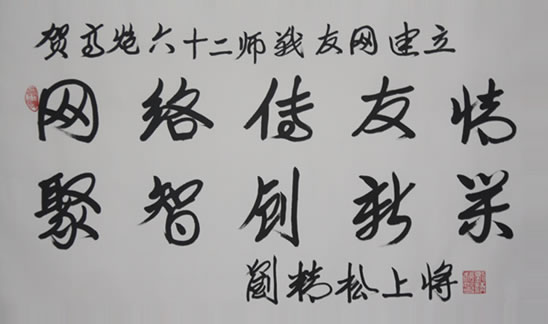 贺高炮六十二师战友网建立
网络传友情
聚智创新业
刘精松上将